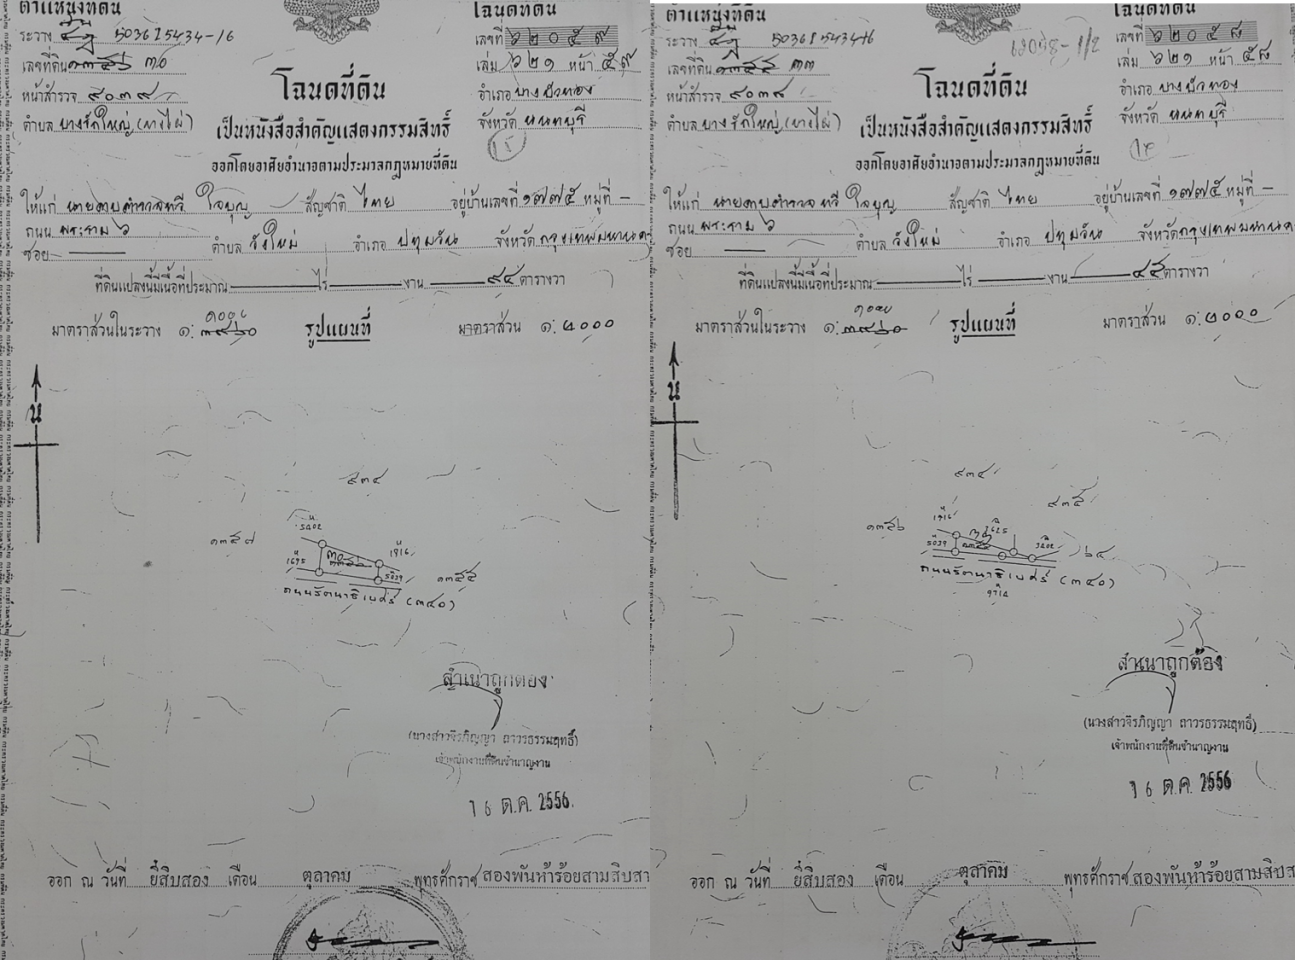 ตำแหน่งที่ดิน
ระวาง 5036 I 5434-16
เลขที่ดิน ๓๐
หน้าสำรวจ ๙๐๓๙
ตำบล บางรักใหญ่ (บางไผ่)
โฉนดที่ดิน
เลขที่ ๖๒๐๕๙
เล่ม ๖๒๑ หน้า ๕๙
อำเภอ บางบัวทอง
จังหวัด นนทบุรี
15
โฉนดที่ดิน
เป็นหนังสือสำคัญแสดงกรรมสิทธิ์
ออกโดยอาศัยอำนาจตามประมวลกฎหมายที่ดิน
ให้แก่ นายดาบตำรวจทวี ใจบุญ สัญชาติ ไทย อยู่บ้านเลขที่ ๑๗๗๕ หมู่ที่ -
ถนน พระราม ๖
ซอย ตำบล วังใหม่ อำเภอ ปทุมวัน จังหวัด กรุงเทพมหานคร
ที่ดินแปลงนี้มีเนื้อที่ประมาณ ไร่ งาน ๙๔ ตารางวา
๑๐๐๐
มาตราส่วนในระวาง ๑: รูปแผนที่ มาตราส่วน ๑:๒๐๐๐
น
๙๓๔
๑๓๕๗
5202
1916
1695
5039
๑๓๕๕
ถนนรัตนาธิเบศร์ (๓๔๐)
สำเนาถูกต้อง
(นางสาวจิรภิญญา ถาวรธรรมฤทธิ์)
เจ้าพนักงานที่ดินชำนาญงาน
16 ต.ค. 2556
ออก ณ วันที่ ยี่สิบสอง เดือน ตุลาคม พุทธศักราช สองพันห้าร้อยสามสิบสา
ตำแหน่งที่ดิน
ระวาง 5036 I 5434-16
เลขที่ดิน ๓๓
หน้าสำรวจ ๙๐๓๘
ตำบล บางรักใหญ่ (บางไผ่)
โฉนดที่ดิน
เลขที่ ๖๒๐๕๘
เล่ม ๖๒๑ หน้า ๕๘
อำเภอ บางบัวทอง
จังหวัด นนทบุรี
โฉนดที่ดิน
เป็นหนังสือสำคัญแสดงกรรมสิทธิ์
ออกโดยอาศัยอำนาจตามประมวลกฎหมายที่ดิน
ให้แก่ นายดาบตำรวจทวี ใจบุญ สัญชาติ ไทย อยู่บ้านเลขที่ ๑๗๗๕ หมู่ที่ -
ถนน พระราม ๖
ซอย ตำบล วังใหม่ อำเภอ ปทุมวัน จังหวัด กรุงเทพมหานคร
ที่ดินแปลงนี้มีเนื้อที่ประมาณ ไร่ งาน ๔๕ ตารางวา
๑๐๐๐
มาตราส่วนในระวาง ๑: รูปแผนที่ มาตราส่วน ๑:๒๐๐๐
น
๙๓๔
๙๓๕
๑๓๕๖
1916
1625
5039
5202
๖๔
ถนนรัตนาธิเบศร์ (๓๔๐)
สำเนาถูกต้อง
(นางสาวจิรภิญญา ถาวรธรรมฤทธิ์)
เจ้าพนักงานที่ดินชำนาญงาน
16 ต.ค. 2556
ออก ณ วันที่ ยี่สิบสอง เดือน ตุลาคม พุทธศักราช สองพันห้าร้อยสามสิบส